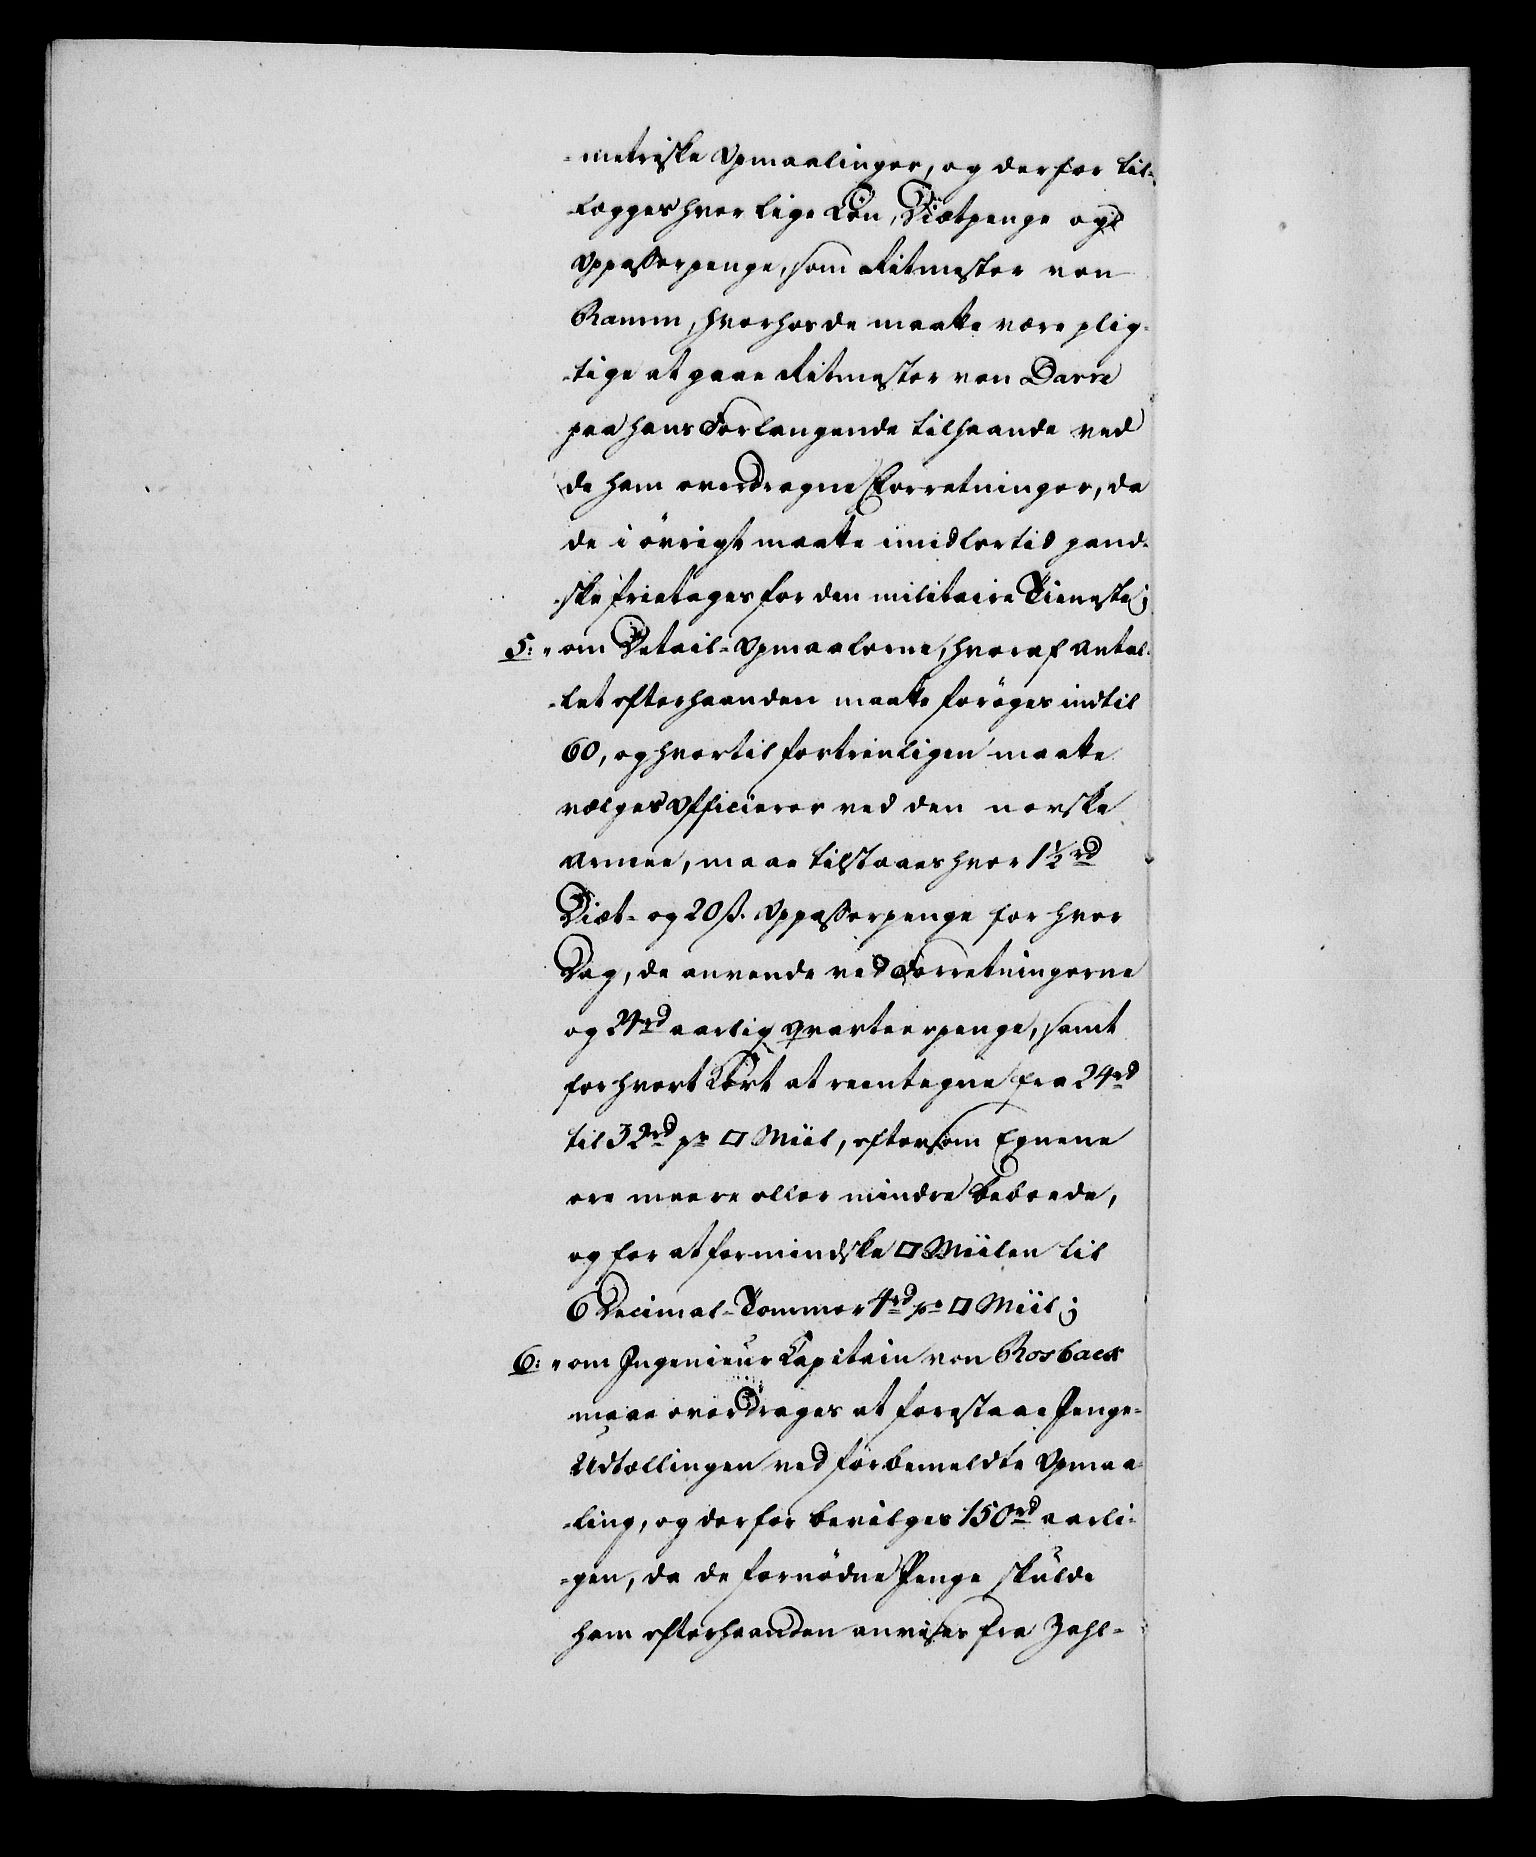 -metriske Opmaalinger, og derfor til-
-lægges hver lige Løn, Diætpenge og
Oppasserpenge, som Ritmester von
Ramm, hvorhos de maatte være plig-
-tige at gaae Ritmester von Darre
paa hans Forlangende tilhaande ved
de ham overdragne Forretninger, da
de i övrigt maatte imidlertid gand-
-ske frietages for den militaire Tieneste;
5: " om Detail-Opmaalerne, hvoraf Antal-
-let efterhaanden maatte foröges indtil
60, og hvortil fortrinligen maatte
vælges Officierer ved den norske
Armee, maae tilstaaes hver 1½ rd
Diæt- og 20 ß. Oppasserpenge for hver
Dag, de anvende ved Forretningerne
og 24 rd aarlig Qvarteerpenge, samt
for hvert Kort at reentegne fra 24 rd
til 32 rd pr □ Miil, eftersom Egnene
ere meere eller mindre beboede,
og for at formindske □ Miilen til
6 Decimal-Tommer 4 rd pr □ Miil;
6: " om Ingenieur Capitain von Rosback
maae overdrages at forestaae Penge-
Udtællingen ved förbemeldte Opmaa-
-ling, og derfor bevilges 150 rd aarli-
-gen, da de fornödne Penge skulde
ham efterhaanden anvises fra Zahl-